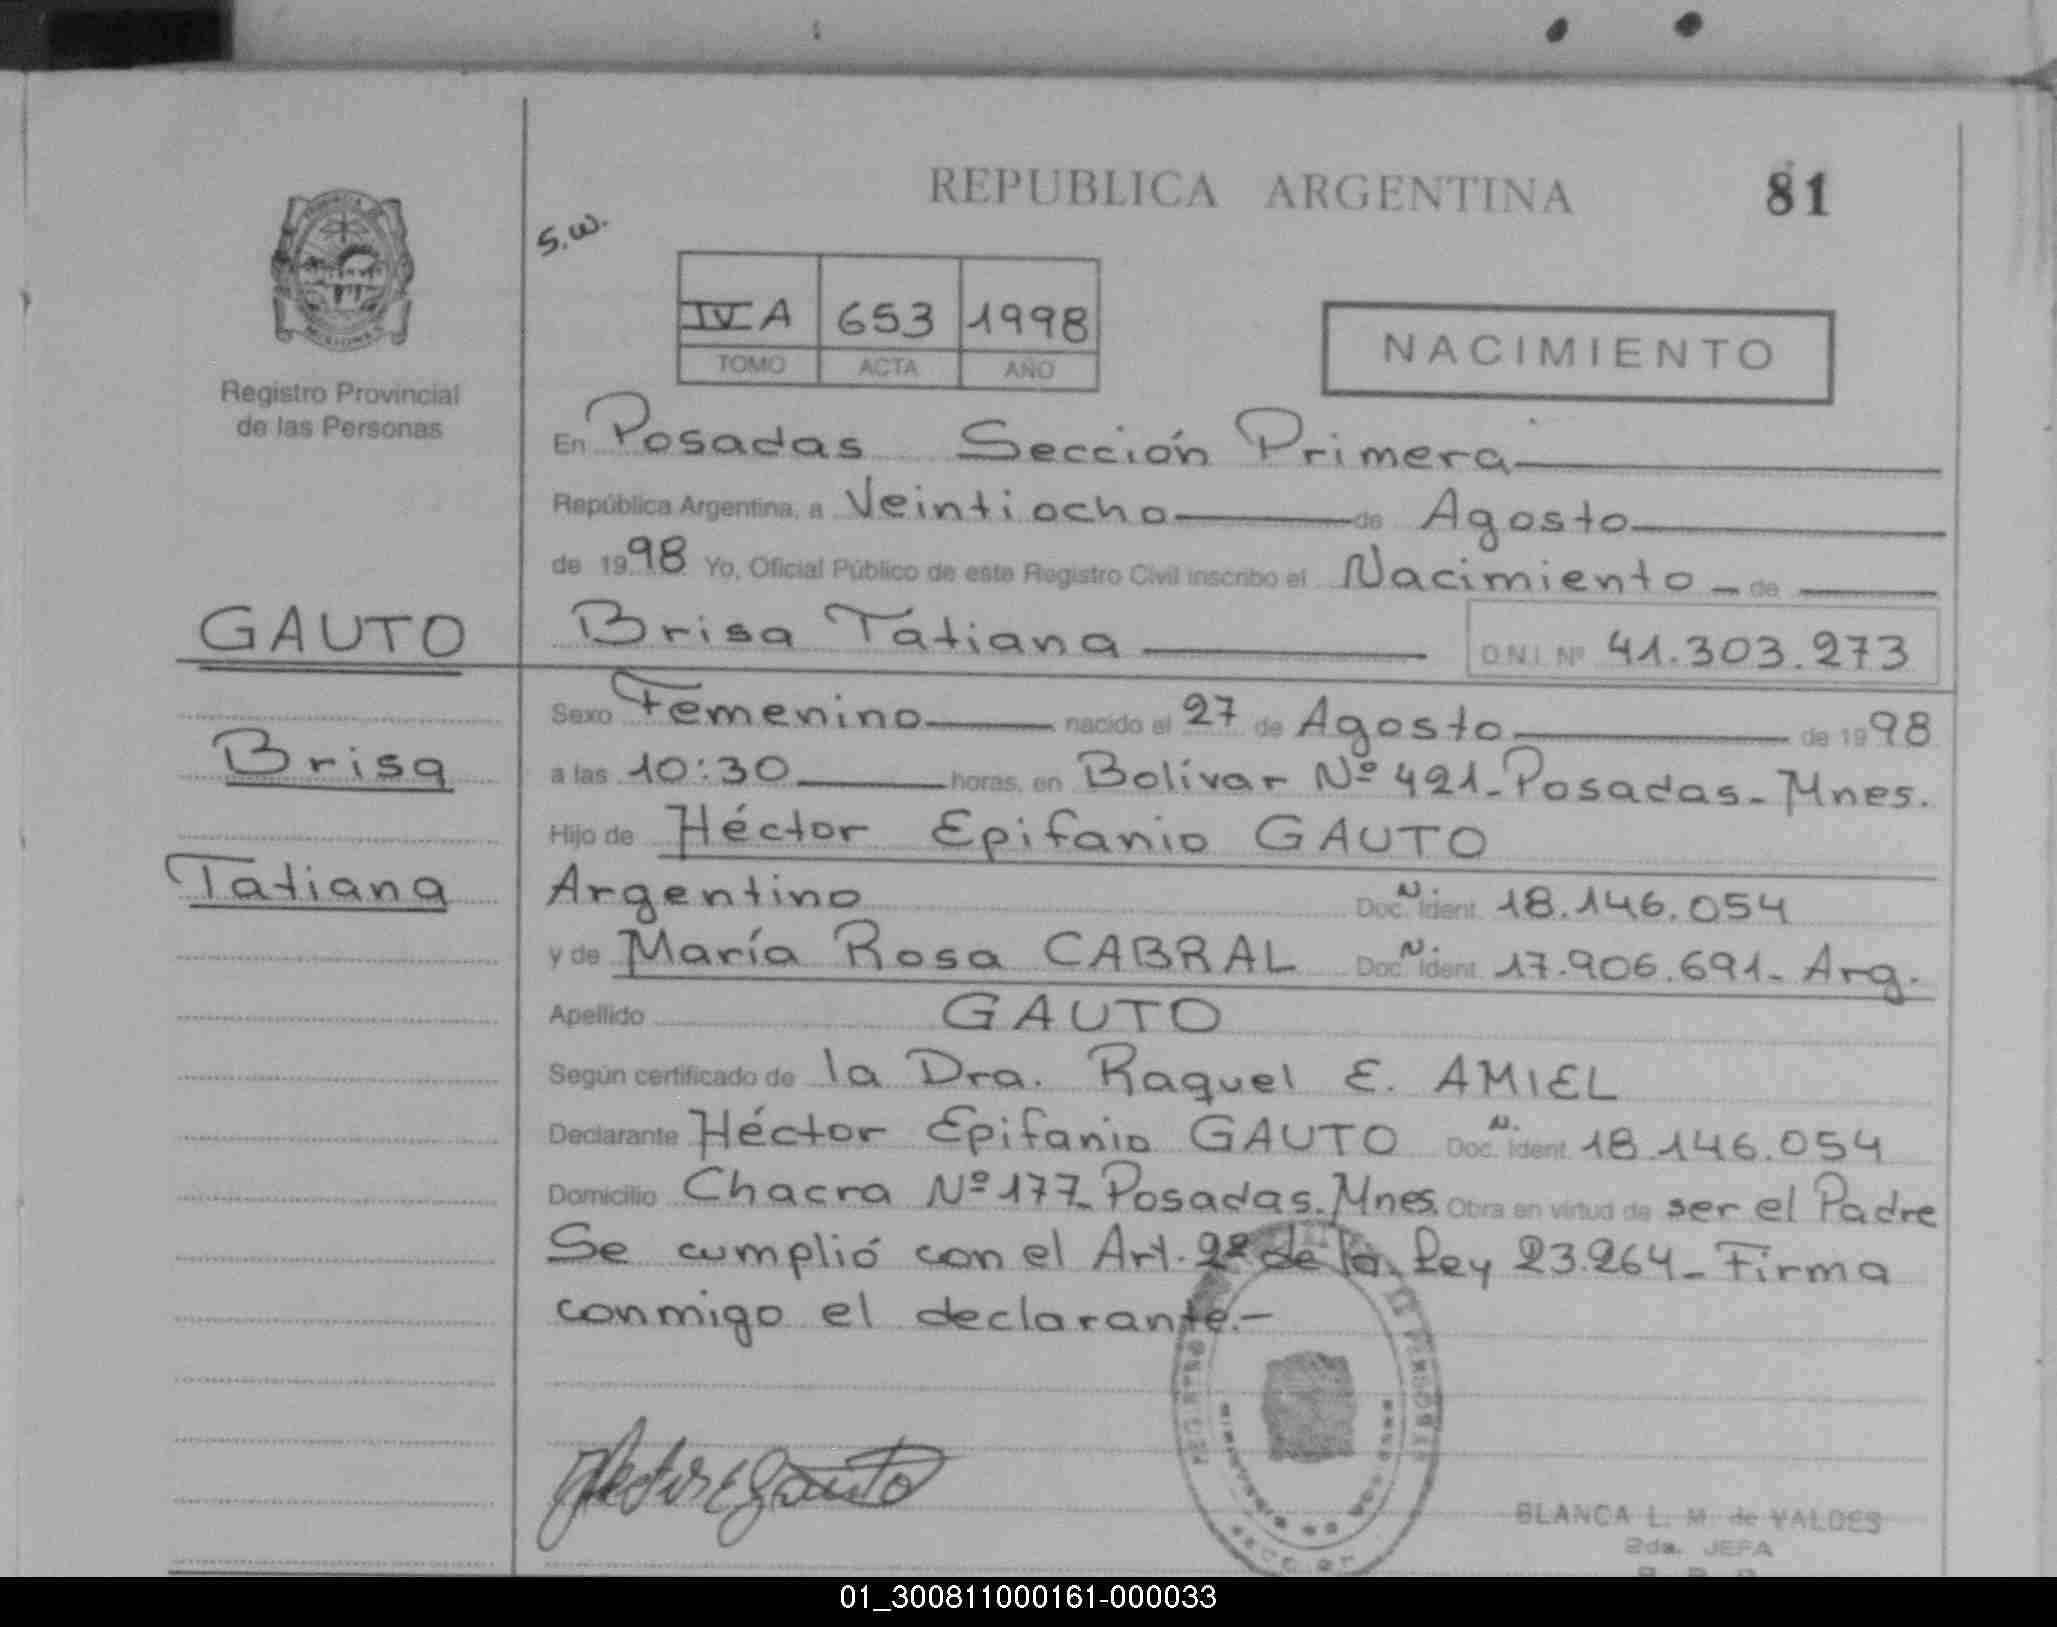 REPUBLICA ARGENTINA 81
S.W.
IV A 653 1998
TOMO ACTA AÑO
NACIMIENTO
Registro Provincial
de las Personas
En Posadas Sección Primera
República Argentina, a Veintiocho de Agosto
de 1998 Yo, Oficial Público de este Registro Civil inscribo el Nacimiento de
GAUTO Brisa Tatiana D.N.I. Nº 41.303.273
Sexo Femenino nacido el 27 de Agosto de 1998
Brisa
a las 10:30 horas, en Bolívar Nº 421-Posadas-Mnes.
Hijo de Héctor Epifanio GAUTO
Tatiana
Argentino Doc. N Ident. 18.146.054
y de María Rosa CABRAL Doc. N. Ident. 17.906.691- Arg.
Apellido GAUTO
Según certificado de la Dra. Raquel E. AMIEL
Declarante Héctor Epifanio GAUTO Doc. N. Ident. 18.146.054
Domicilio Chacra Nº 177-Posadas.Mnes. Obra en virtud de ser el Padre
Se cumplió con el Art. 2º de la Ley 23.264-Firma
conmigo el declarante.-
Hector E Gauto
BLANCA L. M. de VALDES
2da. JEFA
01_300811000161-000033